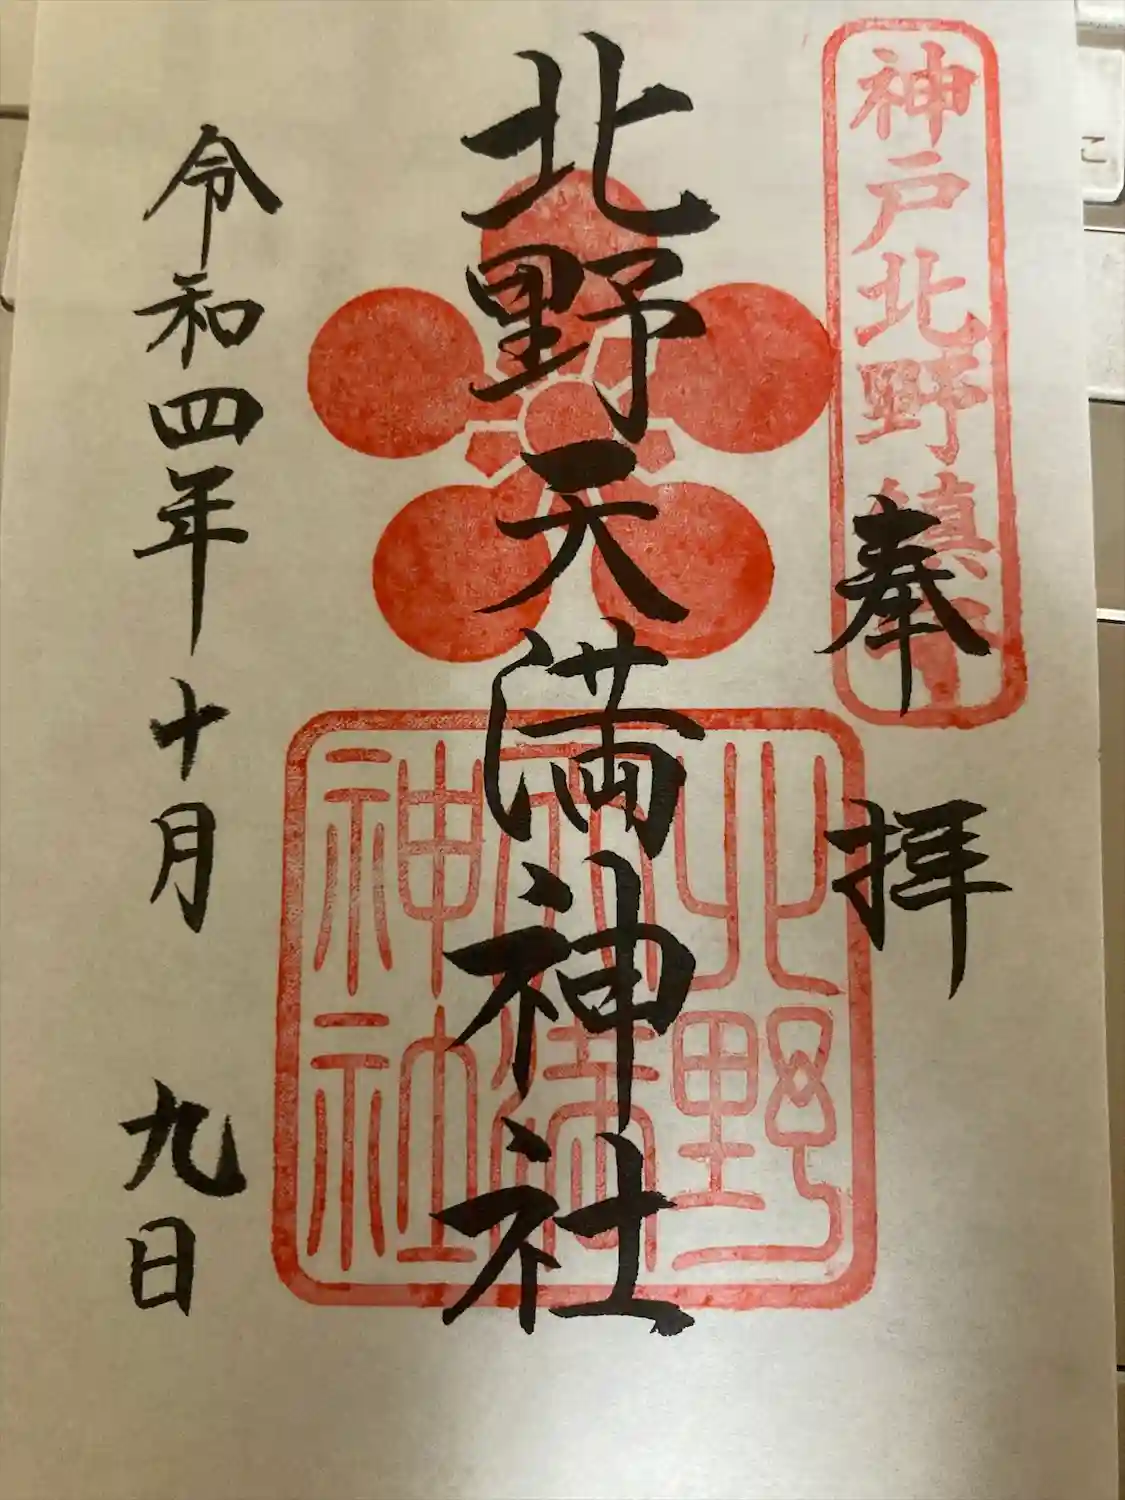 神戸北野鎮守
奉拝
北野天満神社
北野
天満
神社
令和四年十月九日
こ